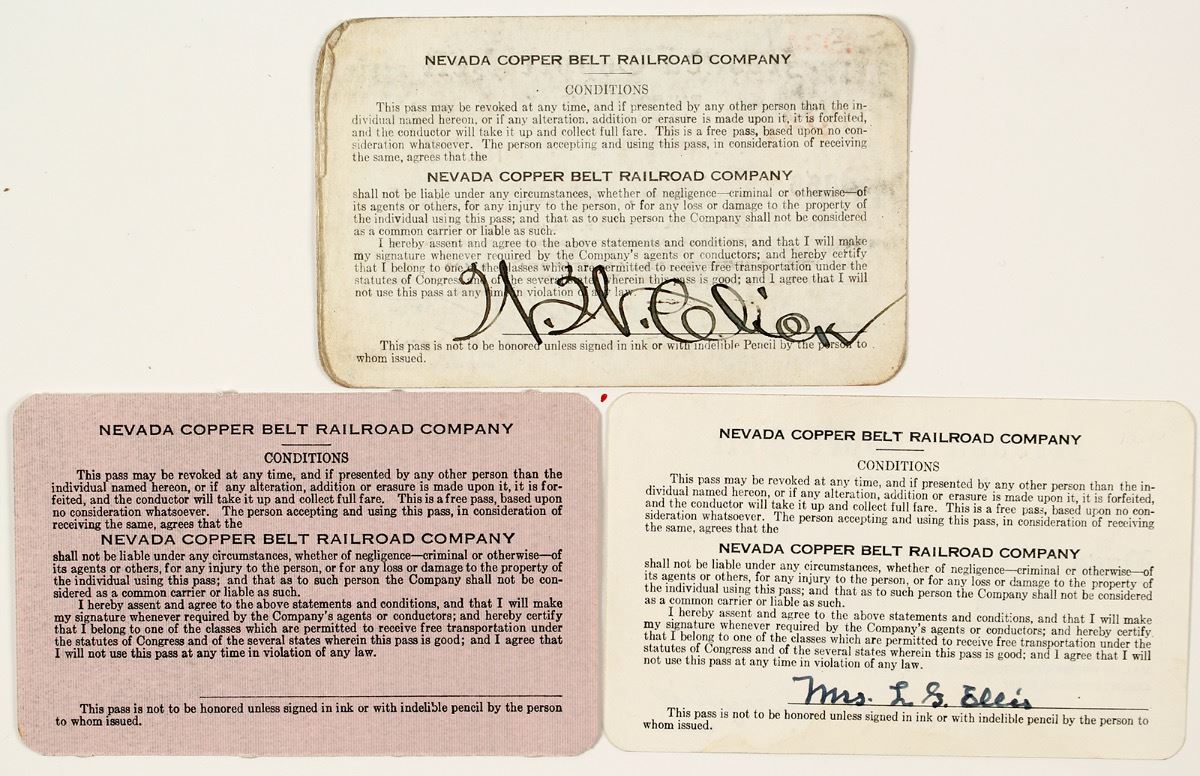 NEVADA COPPER BELT RAILROAD COMPANY
CONDITIONS
This pass may be revoked at any time, and if presented by any other person than the in-
dividual named hereon, or if any alteration, addition or erasure is made upon it, it is forfeited,
and the conductor will take it up and collect full fare. This is a free pass, based upon no con-
sideration whatsoever. The person accepting and using this pass, in consideration of receiving
the same, agrees that the
NEVADA COPPER BELT RAILROAD COMPANY
shall not be liable under any circumstances, whether of negligence—criminal or otherwise—of
its agents or others, for any injury to the person, or for any loss or damage to the property of
the individual using this pass; and that as to such person the Company shall not be considered
as a common carrier or liable as such.
I hereby assent and agree to the above statements and conditions, and that I will make
my signature whenever required by the Company's agents or conductors; and hereby certify
that I belong to one of the classes which are permitted to receive free transportation under the
statutes of Congress and of the several states wherein this pass is good; and I agree that I will
not use this pass at any time in violation of any law.
This pass is not to be honored unless signed in ink or with indelible Pencil by the person to
whom issued.
NEVADA COPPER BELT RAILROAD COMPANY
CONDITIONS
This pass may be revoked at any time, and if presented by any other person than the
individual named hereon, or if any alteration, addition or erasure is made upon it, it is for-
feited, and the conductor will take it up and collect full fare. This is a free pass, based upon
no consideration whatsoever. The person accepting and using this pass, in consideration of
receiving the same, agrees that the
NEVADA COPPER BELT RAILROAD COMPANY
shall not be liable under any circumstances, whether of negligence—criminal or otherwise—of
its agents or others, for any injury to the person, or for any loss or damage to the property of
the individual using this pass; and that as to such person the Company shall not be con-
sidered as a common carrier or liable as such.
I hereby assent and agree to the above statements and conditions, and that I will make
my signature whenever required by the Company's agents or conductors; and hereby certify
that I belong to one of the classes which are permitted to receive free transportation under
the statutes of Congress and of the several states wherein this pass is good; and I agree that
I will not use this pass at any time in violation of any law.
This pass is not to be honored unless signed in ink or with indelible pencil by the person
to whom issued.
NEVADA COPPER BELT RAILROAD COMPANY
CONDITIONS
This pass may be revoked at any time, and if presented by any other person than the in-
dividual named hereon, or if any alteration, addition or erasure is made upon it, it is forfeited,
and the conductor will take it up and collect full fare. This is a free pass, based upon no con-
sideration whatsoever. The person accepting and using this pass, in consideration of receiving
the same, agrees that the
NEVADA COPPER BELT RAILROAD COMPANY
shall not be liable under any circumstances, whether of negligence—criminal or otherwise—of
its agents or others, for any injury to the person, or for any loss or damage to the property of
the individual using this pass; and that as to such person the Company shall not be considered
as a common carrier or liable as such.
I hereby assent and agree to the above statements and conditions, and that I will make
my signature whenever required by the Company's agents or conductors; and hereby certify
that I belong to one of the classes which are permitted to receive free transportation under the
statutes of Congress and of the several states wherein this pass is good; and I agree that I will
not use this pass at any time in violation of any law.
Mrs. L G. Ellis
This pass is not to be honored unless signed in ink or with indelible pencil by the person to
whom issued.